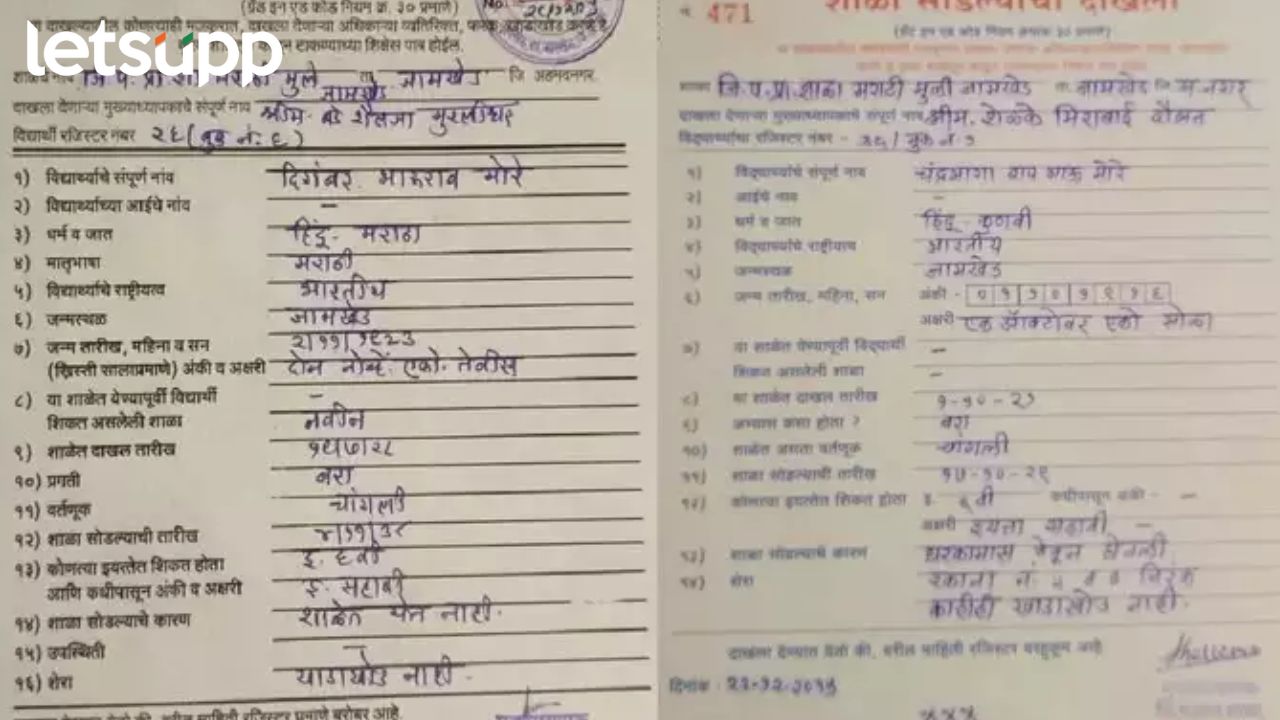 letsupp
(ग्रँट इन एड कोड नियम क्र. ३० प्रमाणे)
दाखल्यातील कोणत्याही मजकुरात, दाखला देणाऱ्या अधिकाऱ्या व्यतिरिक्त,
टाकण्याच्या शिक्षेस पात्र होईल.
जि.प.प्रा.शा. मराठी मुले ता जामखेड जि अहमदनगर.
जामखेड
दाखला देणाऱ्या मुख्याध्यापकाचे संपूर्ण नाव श्रीम. शैलजा मुरलीधर
विद्यार्थी रजिस्टर नंबर २६ (बुक नं. ६)
१) विद्यार्थ्याचे संपूर्ण नांव दिगंबर भाऊराव मोरे
२) विद्यार्थ्याच्या आईचे नांव –
३) धर्म व जात हिंदू - मराठा
४) मातृभाषा मराठी
५) विद्यार्थ्याचे राष्ट्रीयत्व भारतीय
६) जन्मस्थळ जामखेड
७) जन्म तारीख, महिना व सन २/११/१९२३
(ख्रिस्ती सालाप्रमाणे) अंकी व अक्षरी दोन नोव्हें. एको. तेवीस
८) या शाळेत येण्यापूर्वी विद्यार्थी –
शिकत असलेली शाळा नवीन
९) शाळेत दाखल तारीख
१०) प्रगती बरी
११) वर्तणूक चांगली
१२) शाळा सोडल्याची तारीख ४/११/३८
१३) कोणत्या इयत्तेत शिकत होता इ. ६वी
आणि कधीपासून अंकी व अक्षरी इ. सहावी
१४) शाळा सोडल्याचे कारण शाळेत येत नाही.
१५) उपस्थिती –
१६) शेरा खाडाखोड नाही.
माहिती रजिस्टर प्रमाणे बरोबर आहे.
शाळा सोडल्याचा दाखला
471
जि.प.प्रा.शाळा मराठी मुली जामखेड ता. जामखेड जि अ.नगर
दाखला देणाऱ्या मुख्याध्यापकाचे संपूर्ण नाव श्रीम. शेळके मिराबाई दौलत
विद्यार्थ्याचा रजिस्टर नंबर - २६/ बुक नं. १
१) विद्यार्थ्याचे संपूर्ण नाव चंद्रभागा बाप भाऊ मोरे
२) आईचे नाव –
३) धर्म व जात हिंदू - कुणबी
४) विद्यार्थ्याचे राष्ट्रीयत्व भारतीय
५) जन्मस्थळ जामखेड
६) जन्म तारीख, महिना, सन अंकी - ०१९०१९१६
अक्षरी एक ऑक्टोबर एको सोळा
७) या शाळेत येण्यापूर्वी विद्यार्थी –
शिकत असलेली शाळा –
८) या शाळेत दाखल तारीख
९) अभ्यास कसा होता ? बरा
१०) शाळेत असता वर्तणूक चांगली
११) शाळा सोडल्याची तारीख
१२) कोणत्या इयत्तेत शिकत होता इ. ६ वी कधीपासून अंकी - –
अक्षरी इयत्ता सहावी –
१३) शाळा सोडल्याचे कारण घरकामास ठेवून घेतली
१४) शेरा रकाना नं. ५ व ७ निरंक
काहीही खाडाखोड नाही.
दाखला देण्यात येतो की, वरील माहिती रजिस्टर बरहुकूम आहे
दिनांक :